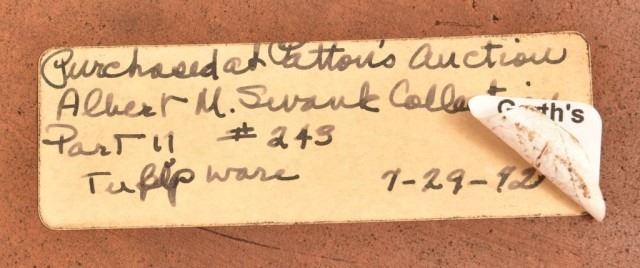 Purchased at Patton's Auction
Albert M. Swank Collection
Garth's
Part 11 #243
Tuflip ware 7-29-92